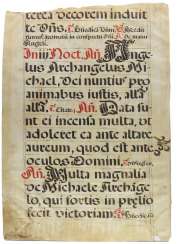 terea decorem induit
te Dñs.
In iii Noct. Añ. Angelus
Archangelus Mi
chael, Dei nuntius pro
animabus iustis, alla
alla. Añ. Data sunt
ei incensa multa, ut
adoleret ea ante altare
aureum, quod est ante
oculos Domini.
Añ. Multa magnalia
de Michaele Archāge
lo, qui fortis in prelio
fecit victoriam.